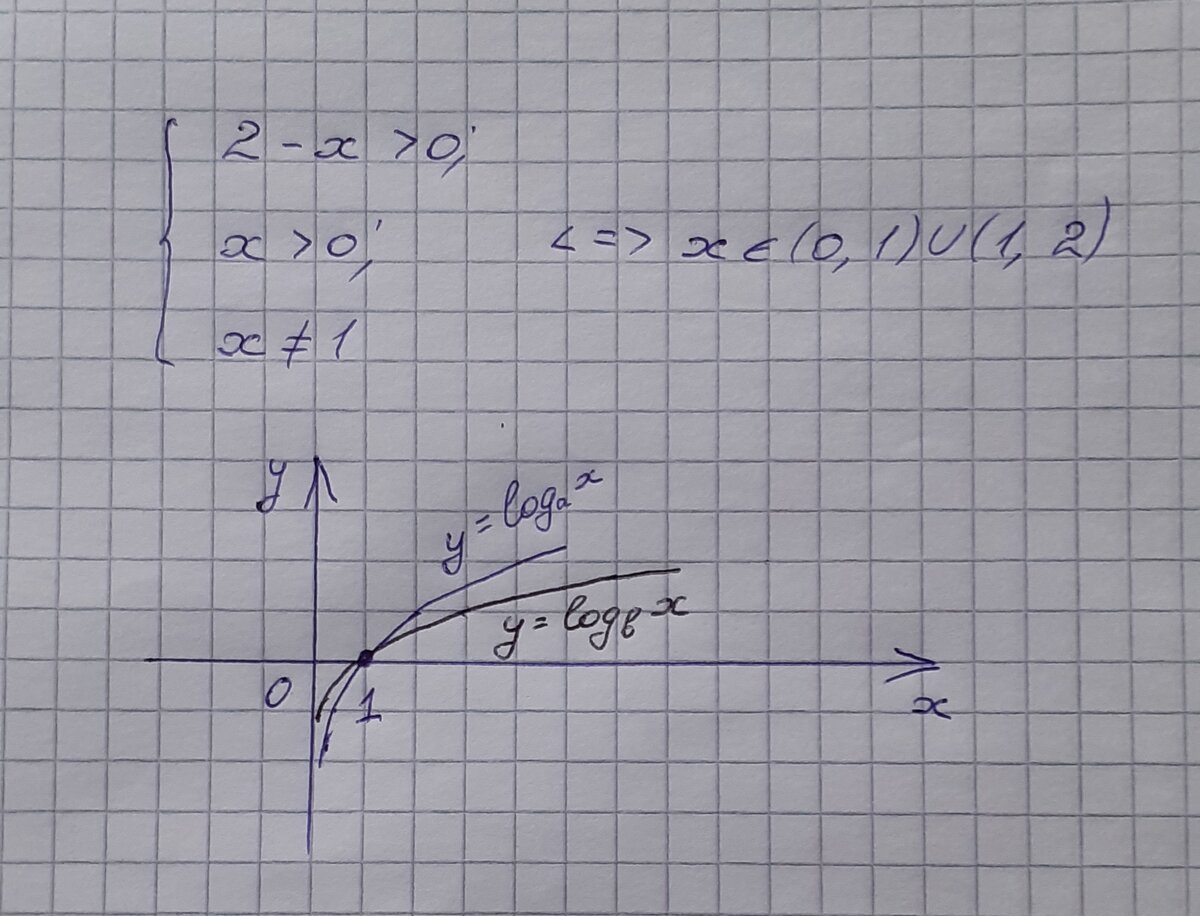 2 - x > 0;
x > 0; <=> x ∈ (0, 1) ∪ (1, 2)
x ≠ 1
y
y = logₐ x
y = log_в x
0 1 x